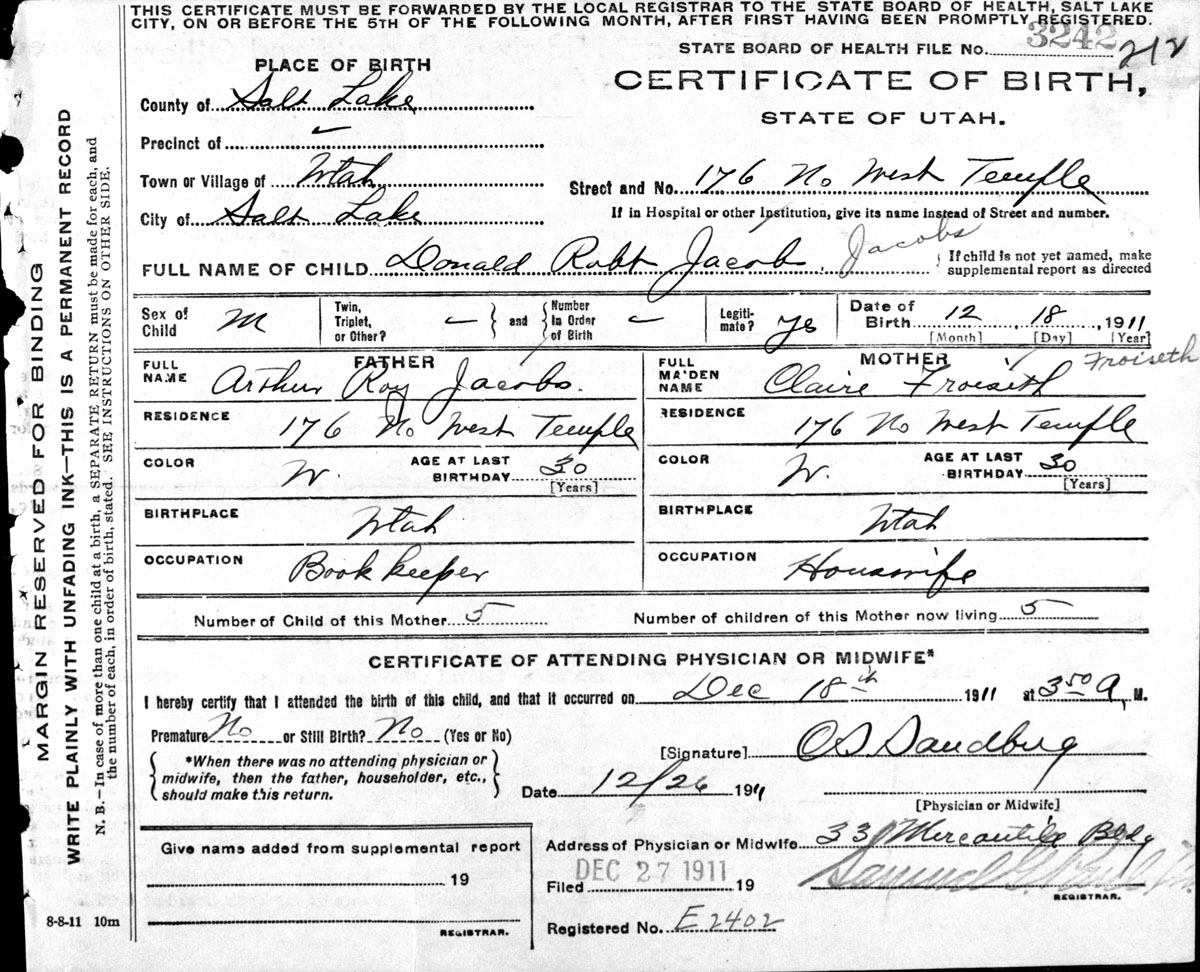 THIS CERTIFICATE MUST BE FORWARDED BY THE LOCAL REGISTRAR TO THE STATE BOARD OF HEALTH, SALT LAKE
CITY, ON OR BEFORE THE 5TH OF THE FOLLOWING MONTH, AFTER FIRST HAVING BEEN PROMPTLY REGISTERED.
STATE BOARD OF HEALTH FILE No. 3242 212
PLACE OF BIRTH
CERTIFICATE OF BIRTH,
STATE OF UTAH.
County of Salt Lake
Precinct of
Town or Village of Utah
Street and No. 176 No West Temple
City of Salt Lake
If in Hospital or other Institution, give its name instead of Street and number.
FULL NAME OF CHILD Donald Robt Jacob. Jacobs
If child is not yet named, make
supplemental report as directed
Sex of Child M
Twin, Triplet, or Other? –
and
Number In Order of Birth –
Legitimate? yes
Date of Birth 12, 18, 1911
[Month] [Day] [Year]
FATHER
FULL NAME Arthur Roy Jacobs.
RESIDENCE
176 No West Temple
COLOR W. AGE AT LAST BIRTHDAY 30
[Years]
BIRTHPLACE
Utah
OCCUPATION
Book keeper
MOTHER
FULL MAIDEN NAME Claire Froiseth Froiseth
RESIDENCE
176 No West Temple
COLOR W. AGE AT LAST BIRTHDAY 30
[Years]
BIRTHPLACE
Utah
OCCUPATION
Housewife
Number of Child of this Mother 5
Number of children of this Mother now living 5
CERTIFICATE OF ATTENDING PHYSICIAN OR MIDWIFE*
I hereby certify that I attended the birth of this child, and that it occurred on Dec 18th 1911 at 3 50 A. M.
Premature No or Still Birth? No (Yes or No)
*When there was no attending physician or
midwife, then the father, householder, etc.,
should make this return.
[Signature]
Date 12/26 1911
[Physician or Midwife]
Give name added from supplemental report
19
REGISTRAR.
Address of Physician or Midwife 33 Mercantile Bldg
Filed DEC 27 1911 19
REGISTRAR.
Registered No. E 2402
8-8-11 10m
MARGIN RESERVED FOR BINDING
WRITE PLAINLY WITH UNFADING INK—THIS IS A PERMANENT RECORD
N. B.—In case of more than one child at a birth, a SEPARATE RETURN must be made for each, and
the number of each, in order of birth, stated. SEE INSTRUCTIONS ON OTHER SIDE.